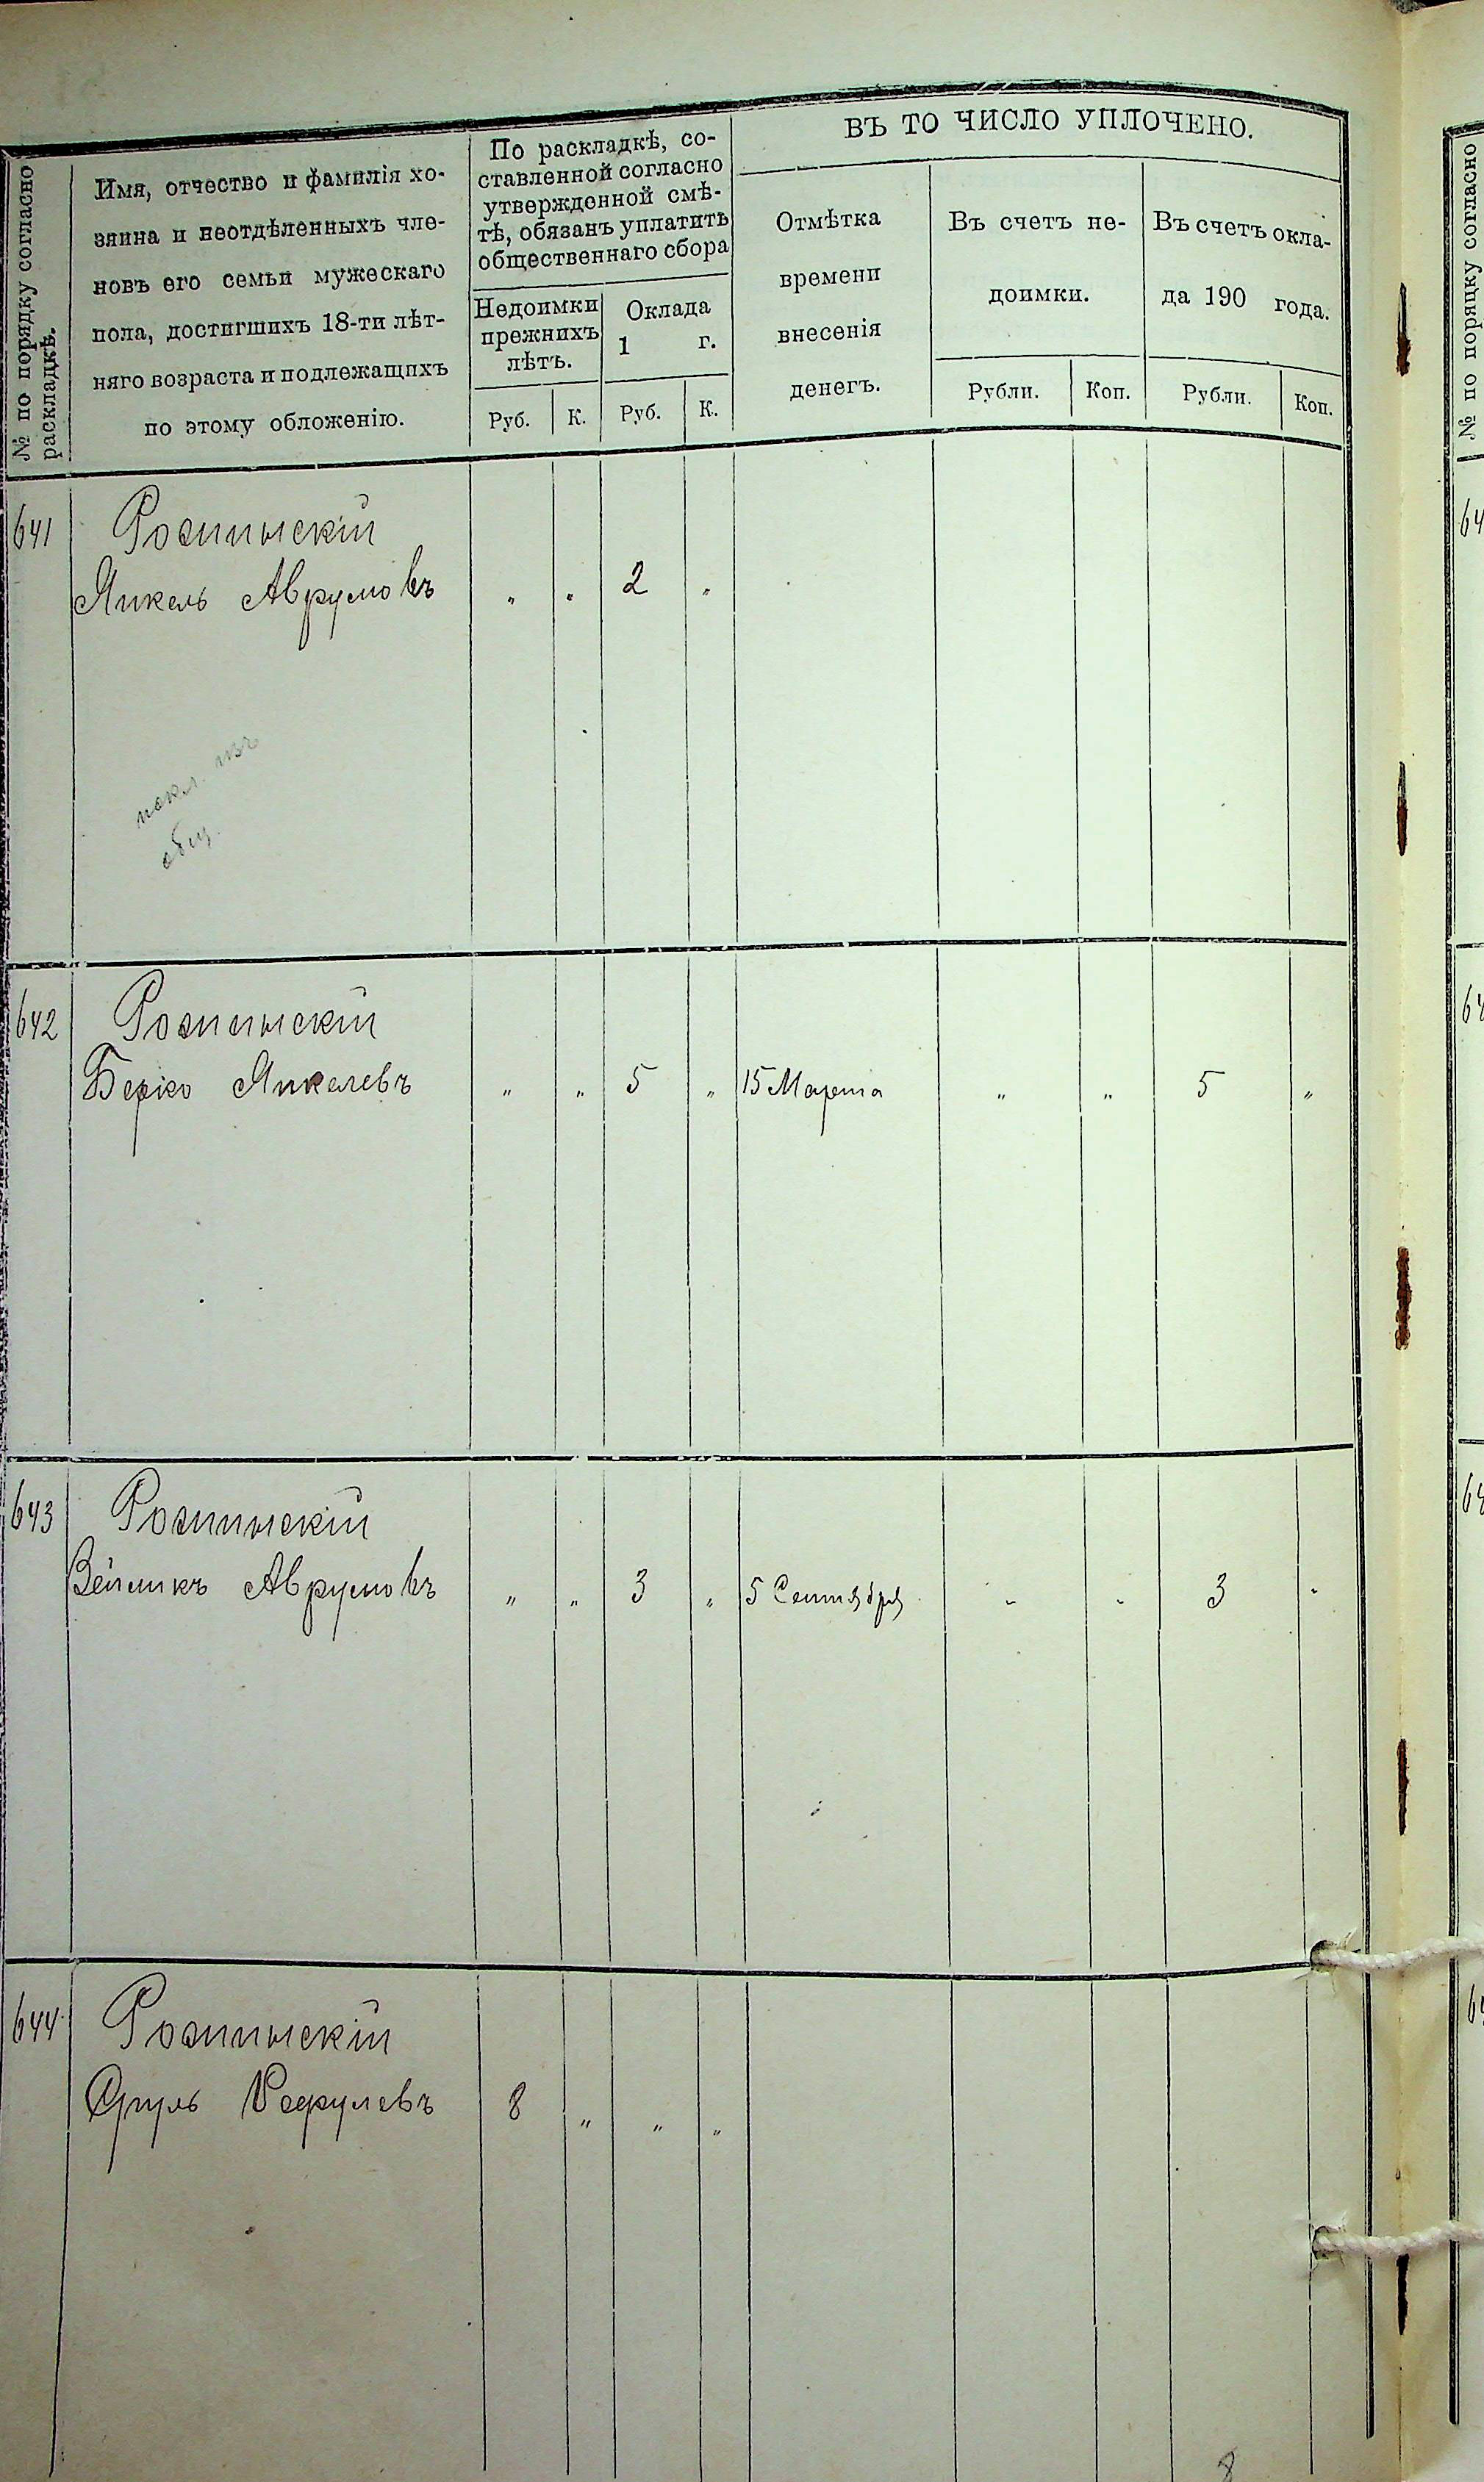 № по порядку согласно
раскладкѣ.
Имя, отчество и фамилія хо-
зяина и неотдѣленныхъ чле-
новъ его семьи мужескаго
пола, достигшихъ 18-ти лѣт-
няго возраста и подлежащихъ
по этому обложенію.
По раскладкѣ, со-
ставленной согласно
утвержденной смѣ-
тѣ, обязанъ уплатить
общественнаго сбора
Недоимки
прежнихъ
лѣтъ.
Руб. К.
Оклада
1 г.
Руб. К.
ВЪ ТО ЧИСЛО УПЛОЧЕНО.
Отмѣтка
времени
внесенія
денегъ.
Въ счетъ не-
доимки.
Рубли. Коп.
Въ счетъ окла-
да 190 года.
Рубли. Коп.
641
Янкель Аврумовъ " " 2 "
642
Берко Янкелевъ " " 5 " 15 Марта " " 5 "
643
Аврумовъ " " 3 " 5 Сентября " " 3 "
644
Сруль 8 " " "
8
№ по порядку согласно